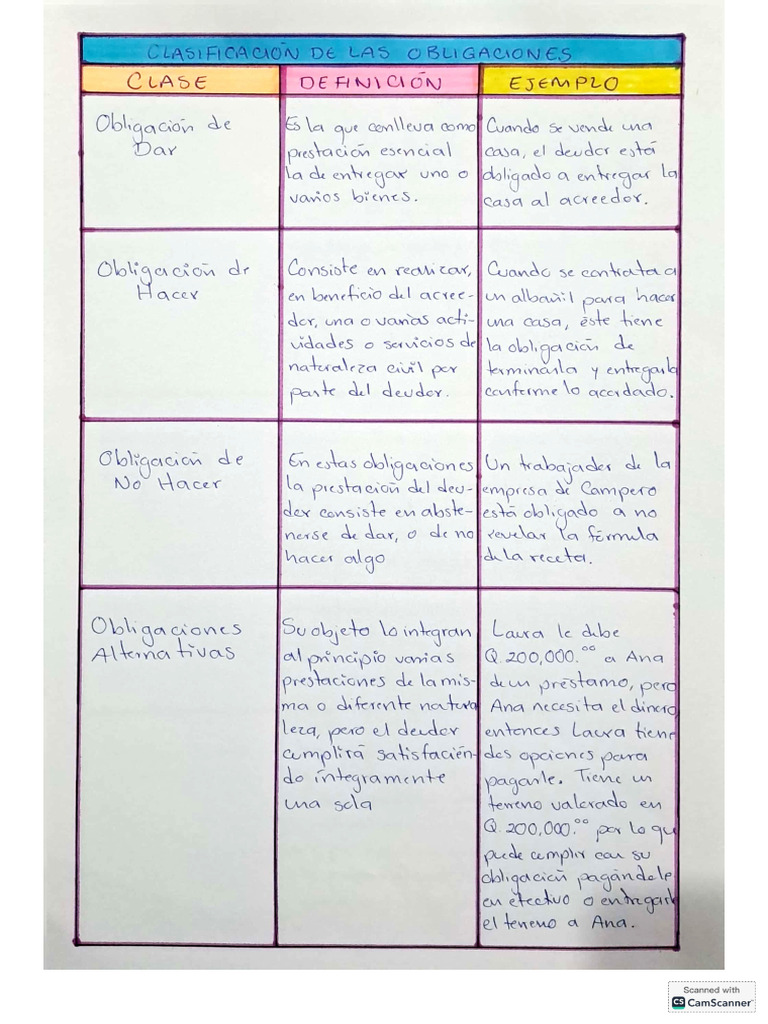 CLASIFICACIÓN DE LAS OBLIGACIONES
CLASE
DEFINICIÓN
EJEMPLO
Obligación de
Dar
Es la que conlleva como
prestación esencial
la de entregar uno o
varios bienes.
Cuando se vende una
casa, el deudor está
obligado a entregar la
casa al acreedor.
Obligación de
Hacer
Consiste en realizar,
en beneficio del acree-
dor, una o varias acti-
vidades o servicios de
naturaleza civil por
parte del deudor.
Cuando se contrata a
un albañil para hacer
una casa, éste tiene
la obligación de
terminarla y entregarla
conforme lo acordado.
Obligación de
No Hacer
En estas obligaciones
la prestación del deu-
dor consiste en abste-
nerse de dar, o de no
hacer algo
Un trabajador de la
empresa de Campero
está obligado a no
revelar la fórmula
de la receta.
Obligaciones
Alternativas
Su objeto lo integran
al principio varias
prestaciones de la mis-
ma o diferente natura
leza, pero el deudor
cumplirá satisfacién-
do íntegramente
una sola
Laura le debe
Q.200,000.⁰⁰ a Ana
de un préstamo, pero
Ana necesita el dinero
entonces Laura tiene
dos opciones para
pagarle. Tiene un
terreno valorado en
Q.200,000.⁰⁰ por lo que
puede cumplir con su
obligación pagándole
en efectivo o entregarle
el terreno a Ana.
Scanned with
CS CamScanner